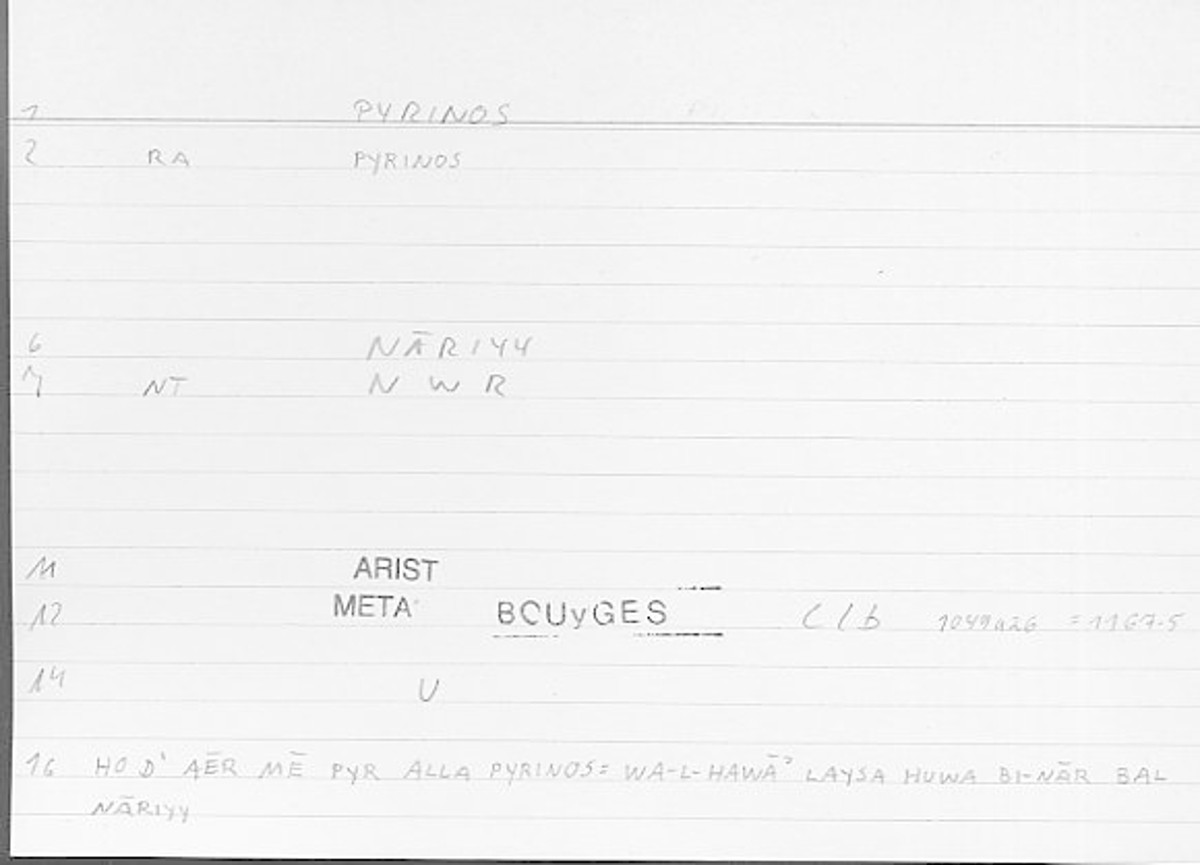 1 PYRINOS
2 RA PYRINOS
6 NĀRIYY
7 NT N W R
11 ARIST
12 META BOUyGES C/b 1049a26 =1167.5
14 U
16 HO D' AĒR MĒ PYR ALLA PYRINOS= WA-L-HAWĀʾ LAYSA HUWA BI-NĀR BAL
NĀRIYY